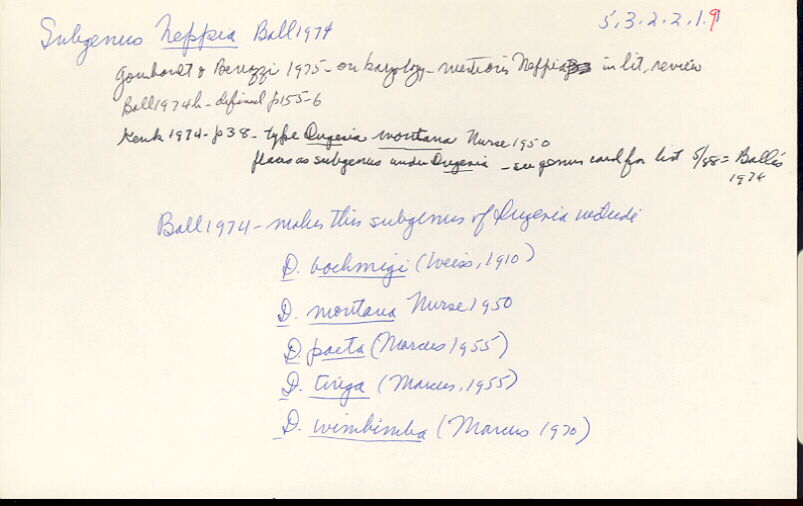 5.3.2.2.1.9
Subgenus Neppia Ball 1974
Gourbault & Benazzi 1975 - on karyology - mentions Neppia in lit. review
Ball 1974b - defined p155-6
Kenk 1974 - p38 - type Dugesia montana Nurse 1950
places as subgenus under Dugesia - see genus card for list 5/88 = Ball's
1974
Ball 1974 - makes this subgenus of Dugesia include
D. boehmigi (Weiss, 1910)
D. montana Nurse 1950
D. paeta (Marcus 1955)
D. tinga (Marcus, 1955)
D. wimbimba (Marcus 1970)